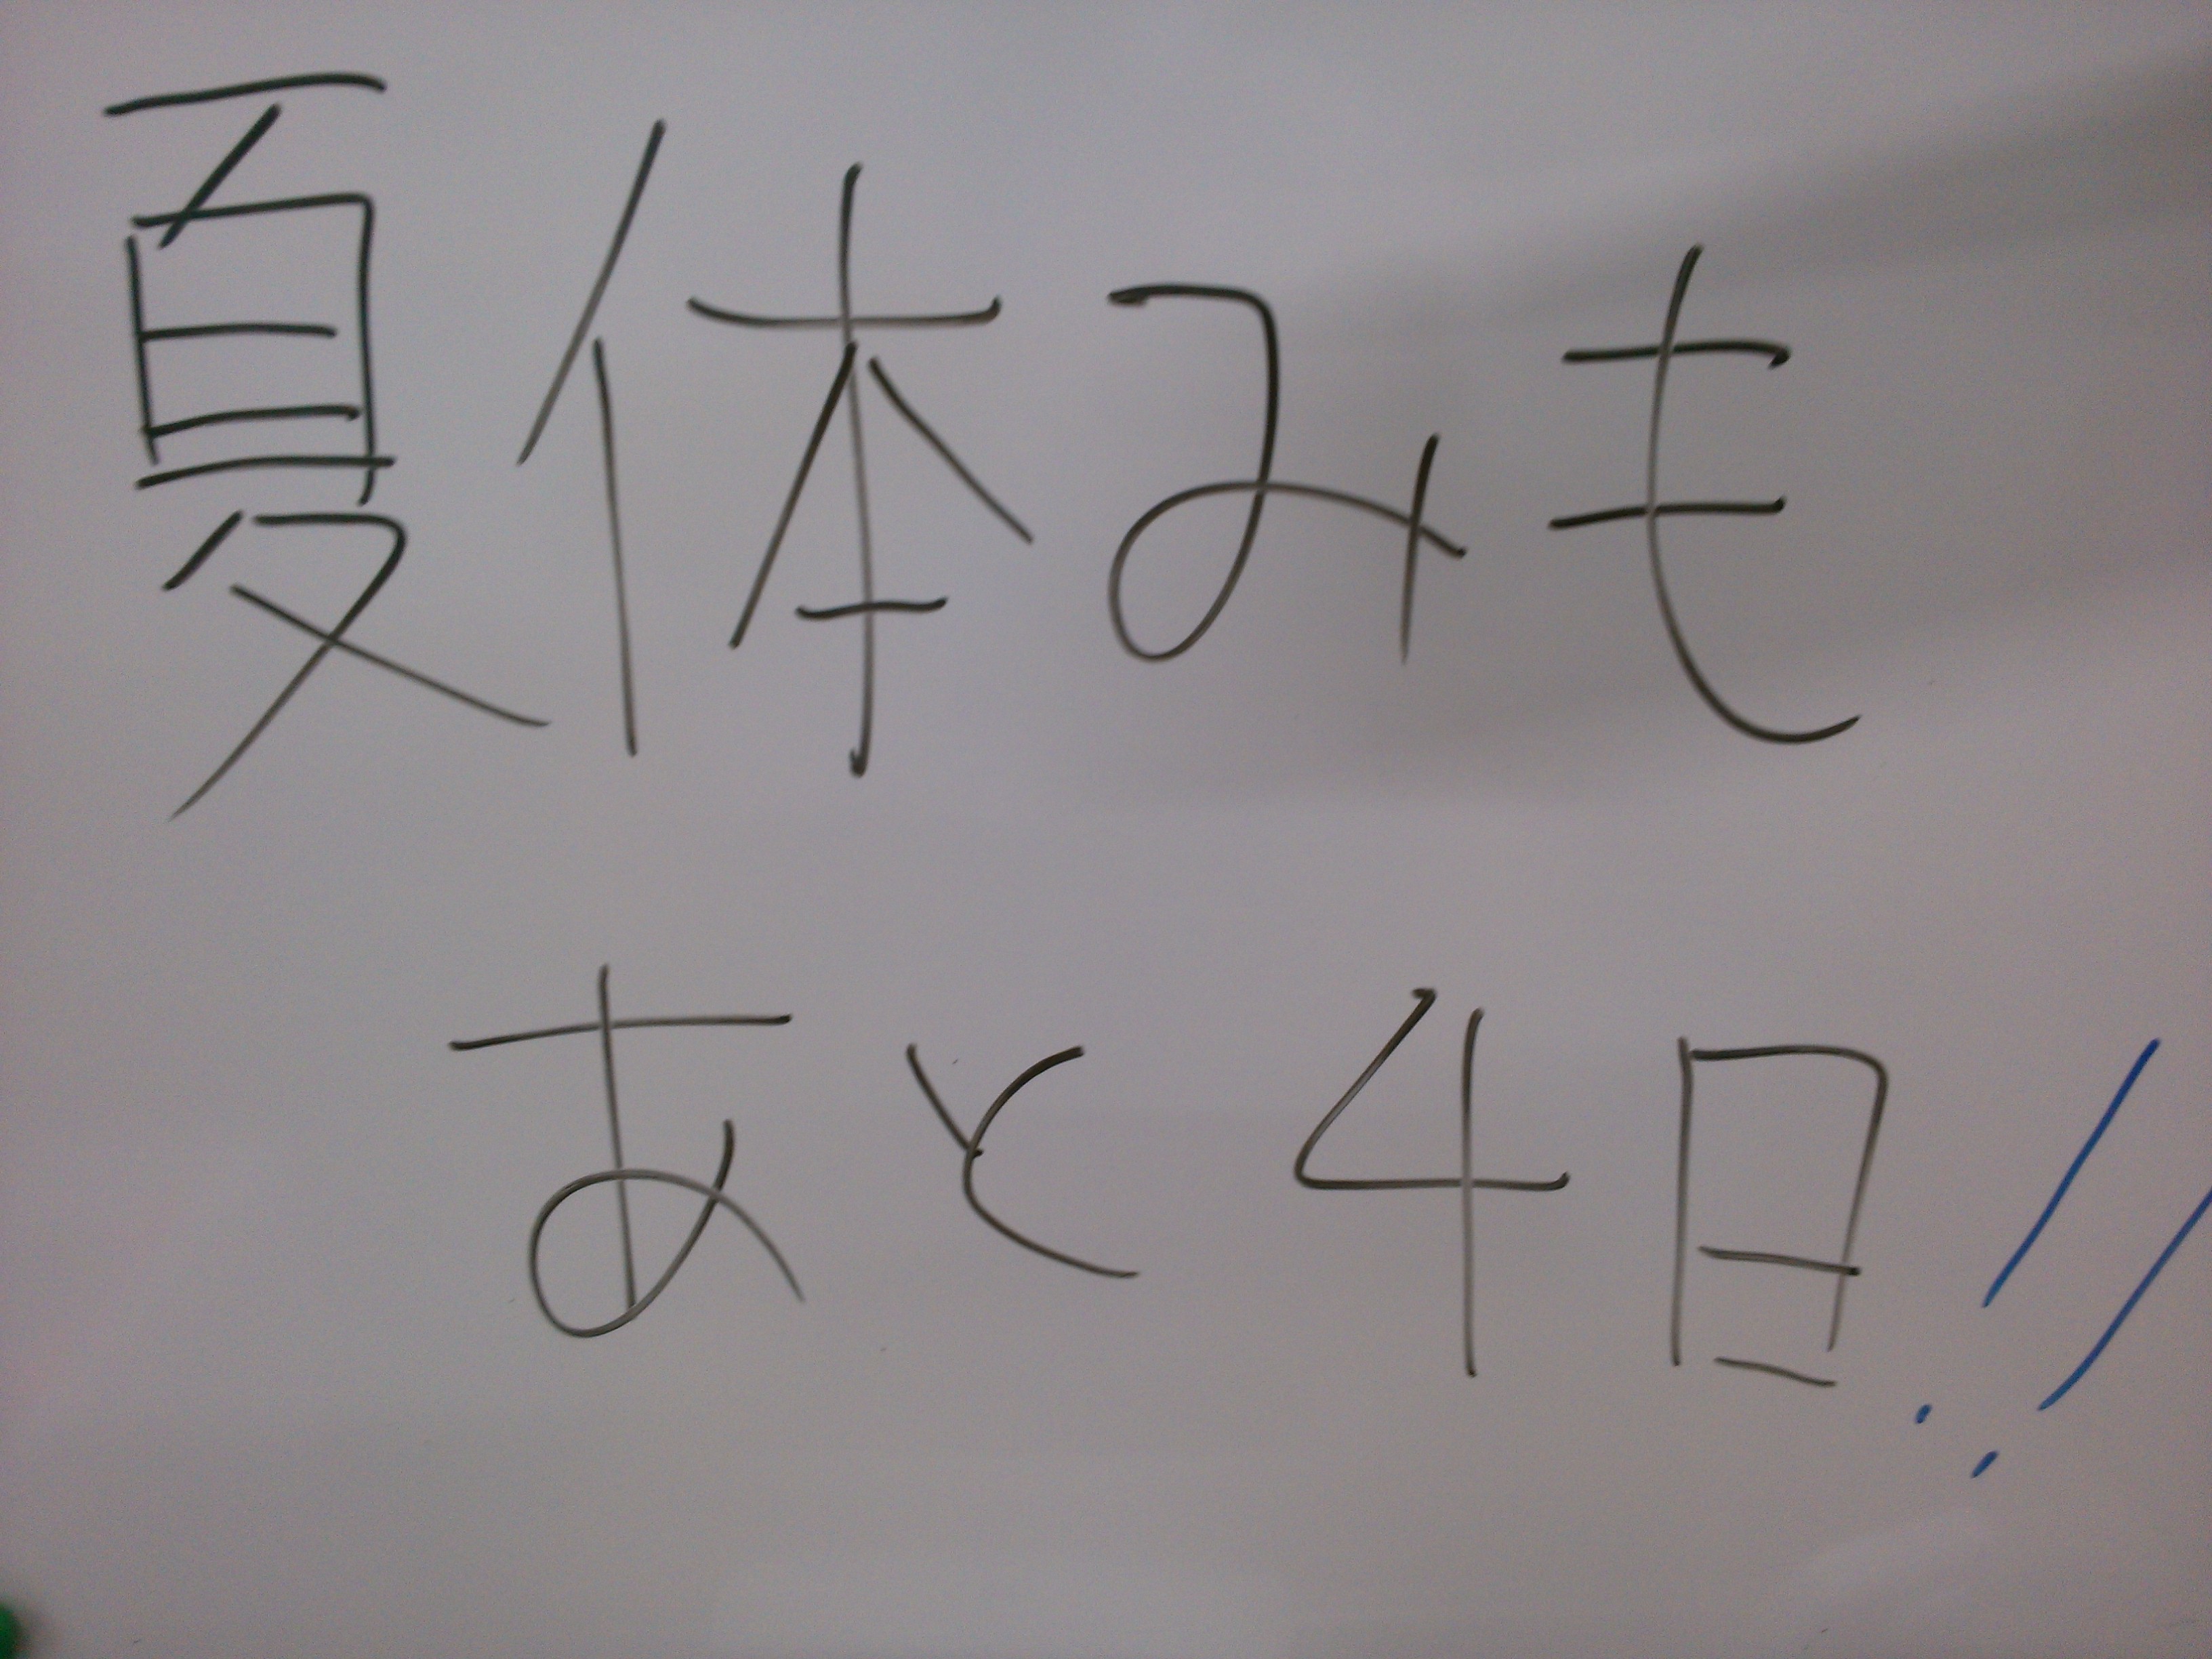 夏休みも
あと4日!!